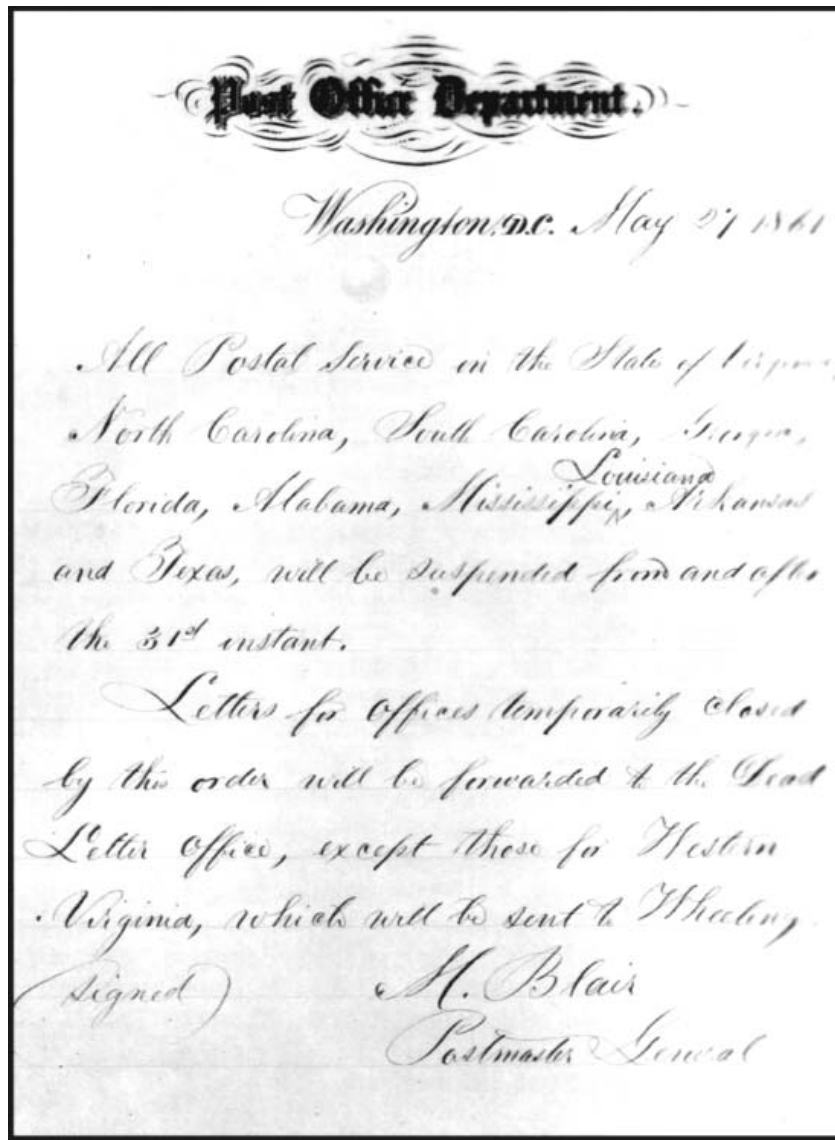 Post Office Department.
Washington, D.C. May 27 1861
All Postal Service in the State of Virginia,
North Carolina, South Carolina, Georgia,
Louisiana
Florida, Alabama, Mississippi, Arkansas
and Texas, will be suspended from and after
the 31st instant.
Letters for offices temporarily closed
by this order will be forwarded to the Dead
Letter office, except those for Western
Virginia, which will be sent to Wheeling.
(signed) M. Blair
Postmaster General